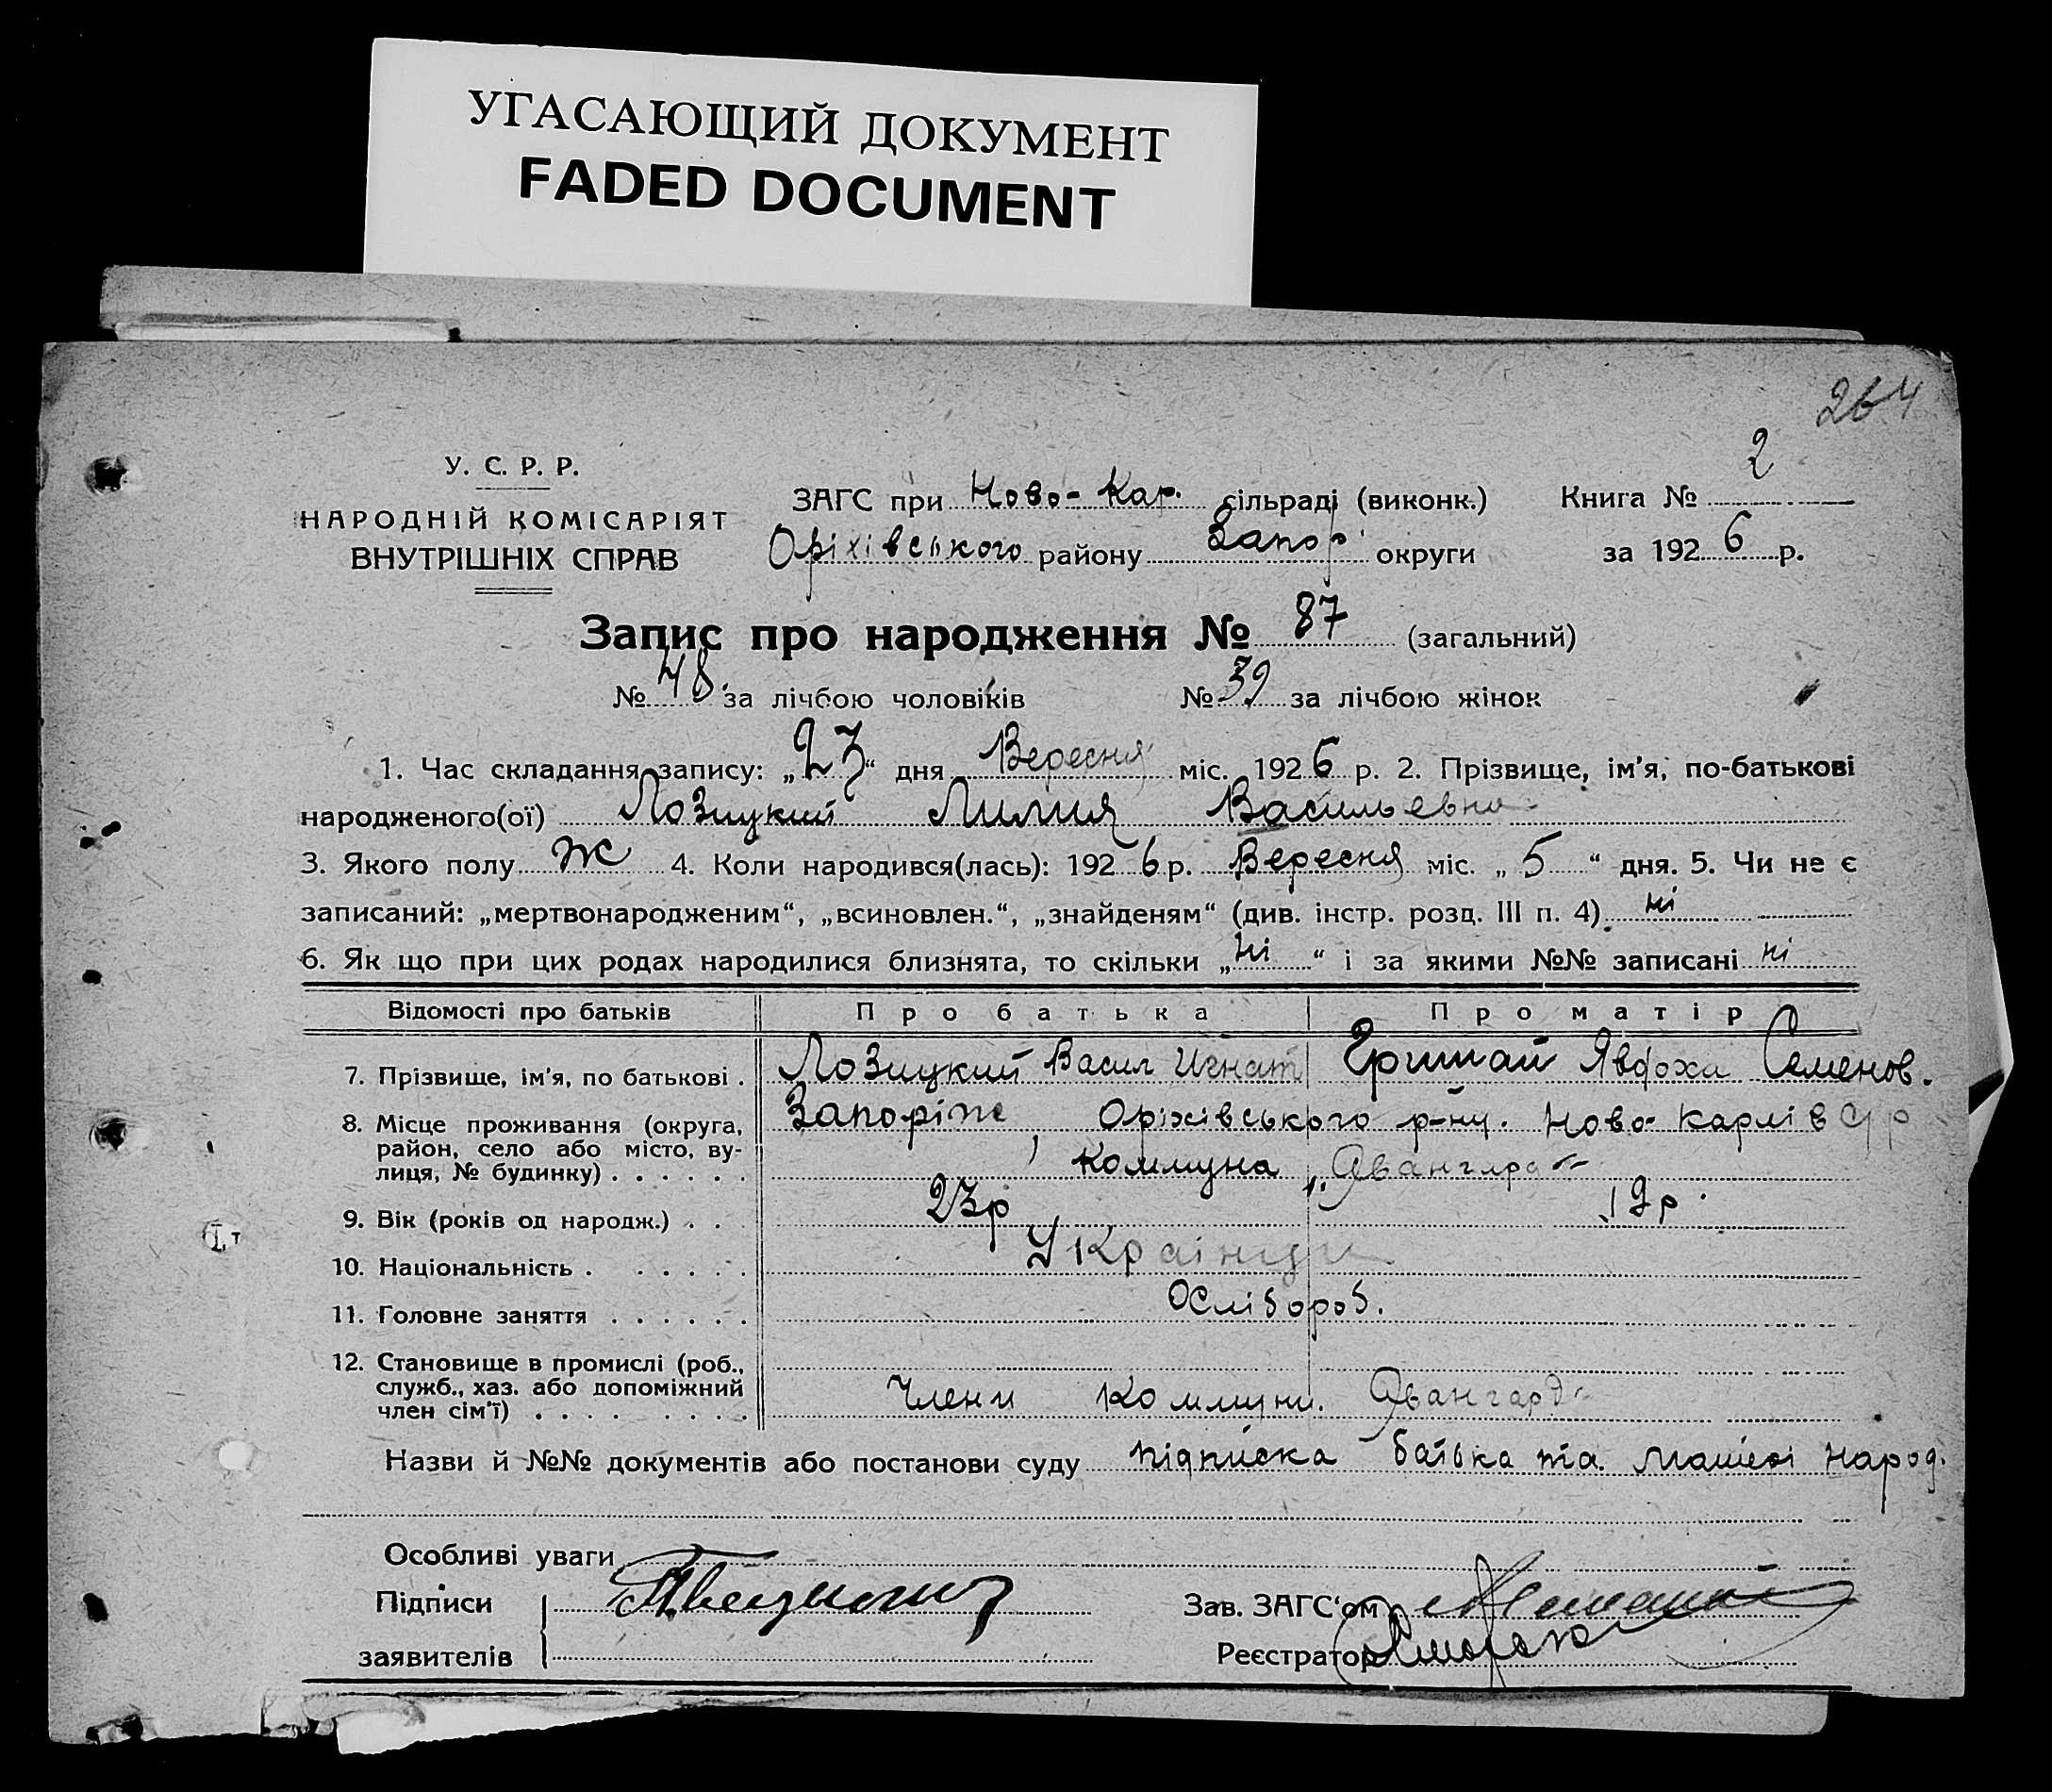 УГАСАЮЩИЙ ДОКУМЕНТ
FADED DOCUMENT
264
У. С. Р. Р.
НАРОДНІЙ КОМІСАРІЯТ
ВНУТРІШНІХ СПРАВ
ЗАГС при Ново-Кар. сільраді (виконк.) Книга № 2
Оріхівського району Запор округи за 1926 р.
Запис про народження № 87 (загальний)
№ 48 за лічбою чоловіків № 39 за лічбою жінок
1. Час складання запису: „23“ дня Вересня міс. 1926 р. 2. Прізвище, ім'я, по-батькові
народженого(ої) Лозицкий Лилия Васильевна
3. Якого полу Ж 4. Коли народився(лась): 1926 р. Вересня міс. „5“ дня. 5. Чи не є
записаний: „мертвонародженим“, „всиновлен.“, „знайденям“ (див. інстр. розд. III п. 4) ні
6. Як що при цих родах народилися близнята, то скільки „ні“ і за якими №№ записані ні
Відомості про батьків Про батька Про матір
7. Прізвище, ім'я, по батькові . Лозицкий Васил Игнат Явдоха Семенов.
8. Місце проживання (округа, Запоріж Оріхівського р-ну. Ново-Карлівс/р
район, село або місто, ву-
лиця, № будинку) . . . . . . Коммуна „Авангард“
9. Вік (років од народж.) . . 23р 19р.
10. Національність . . . . . . Українци
11. Головне заняття . . . . . .
12. Становище в промислі (роб.,
служб., хаз. або допоміжний
член сім'ї) . . . . . . . . Члени Коммуни. Авангард“
Назви й №№ документів або постанови суду підписка батька та матері народ.
Особливі уваги
Підписи Зав. ЗАГС'ом
заявителів Реєстратор